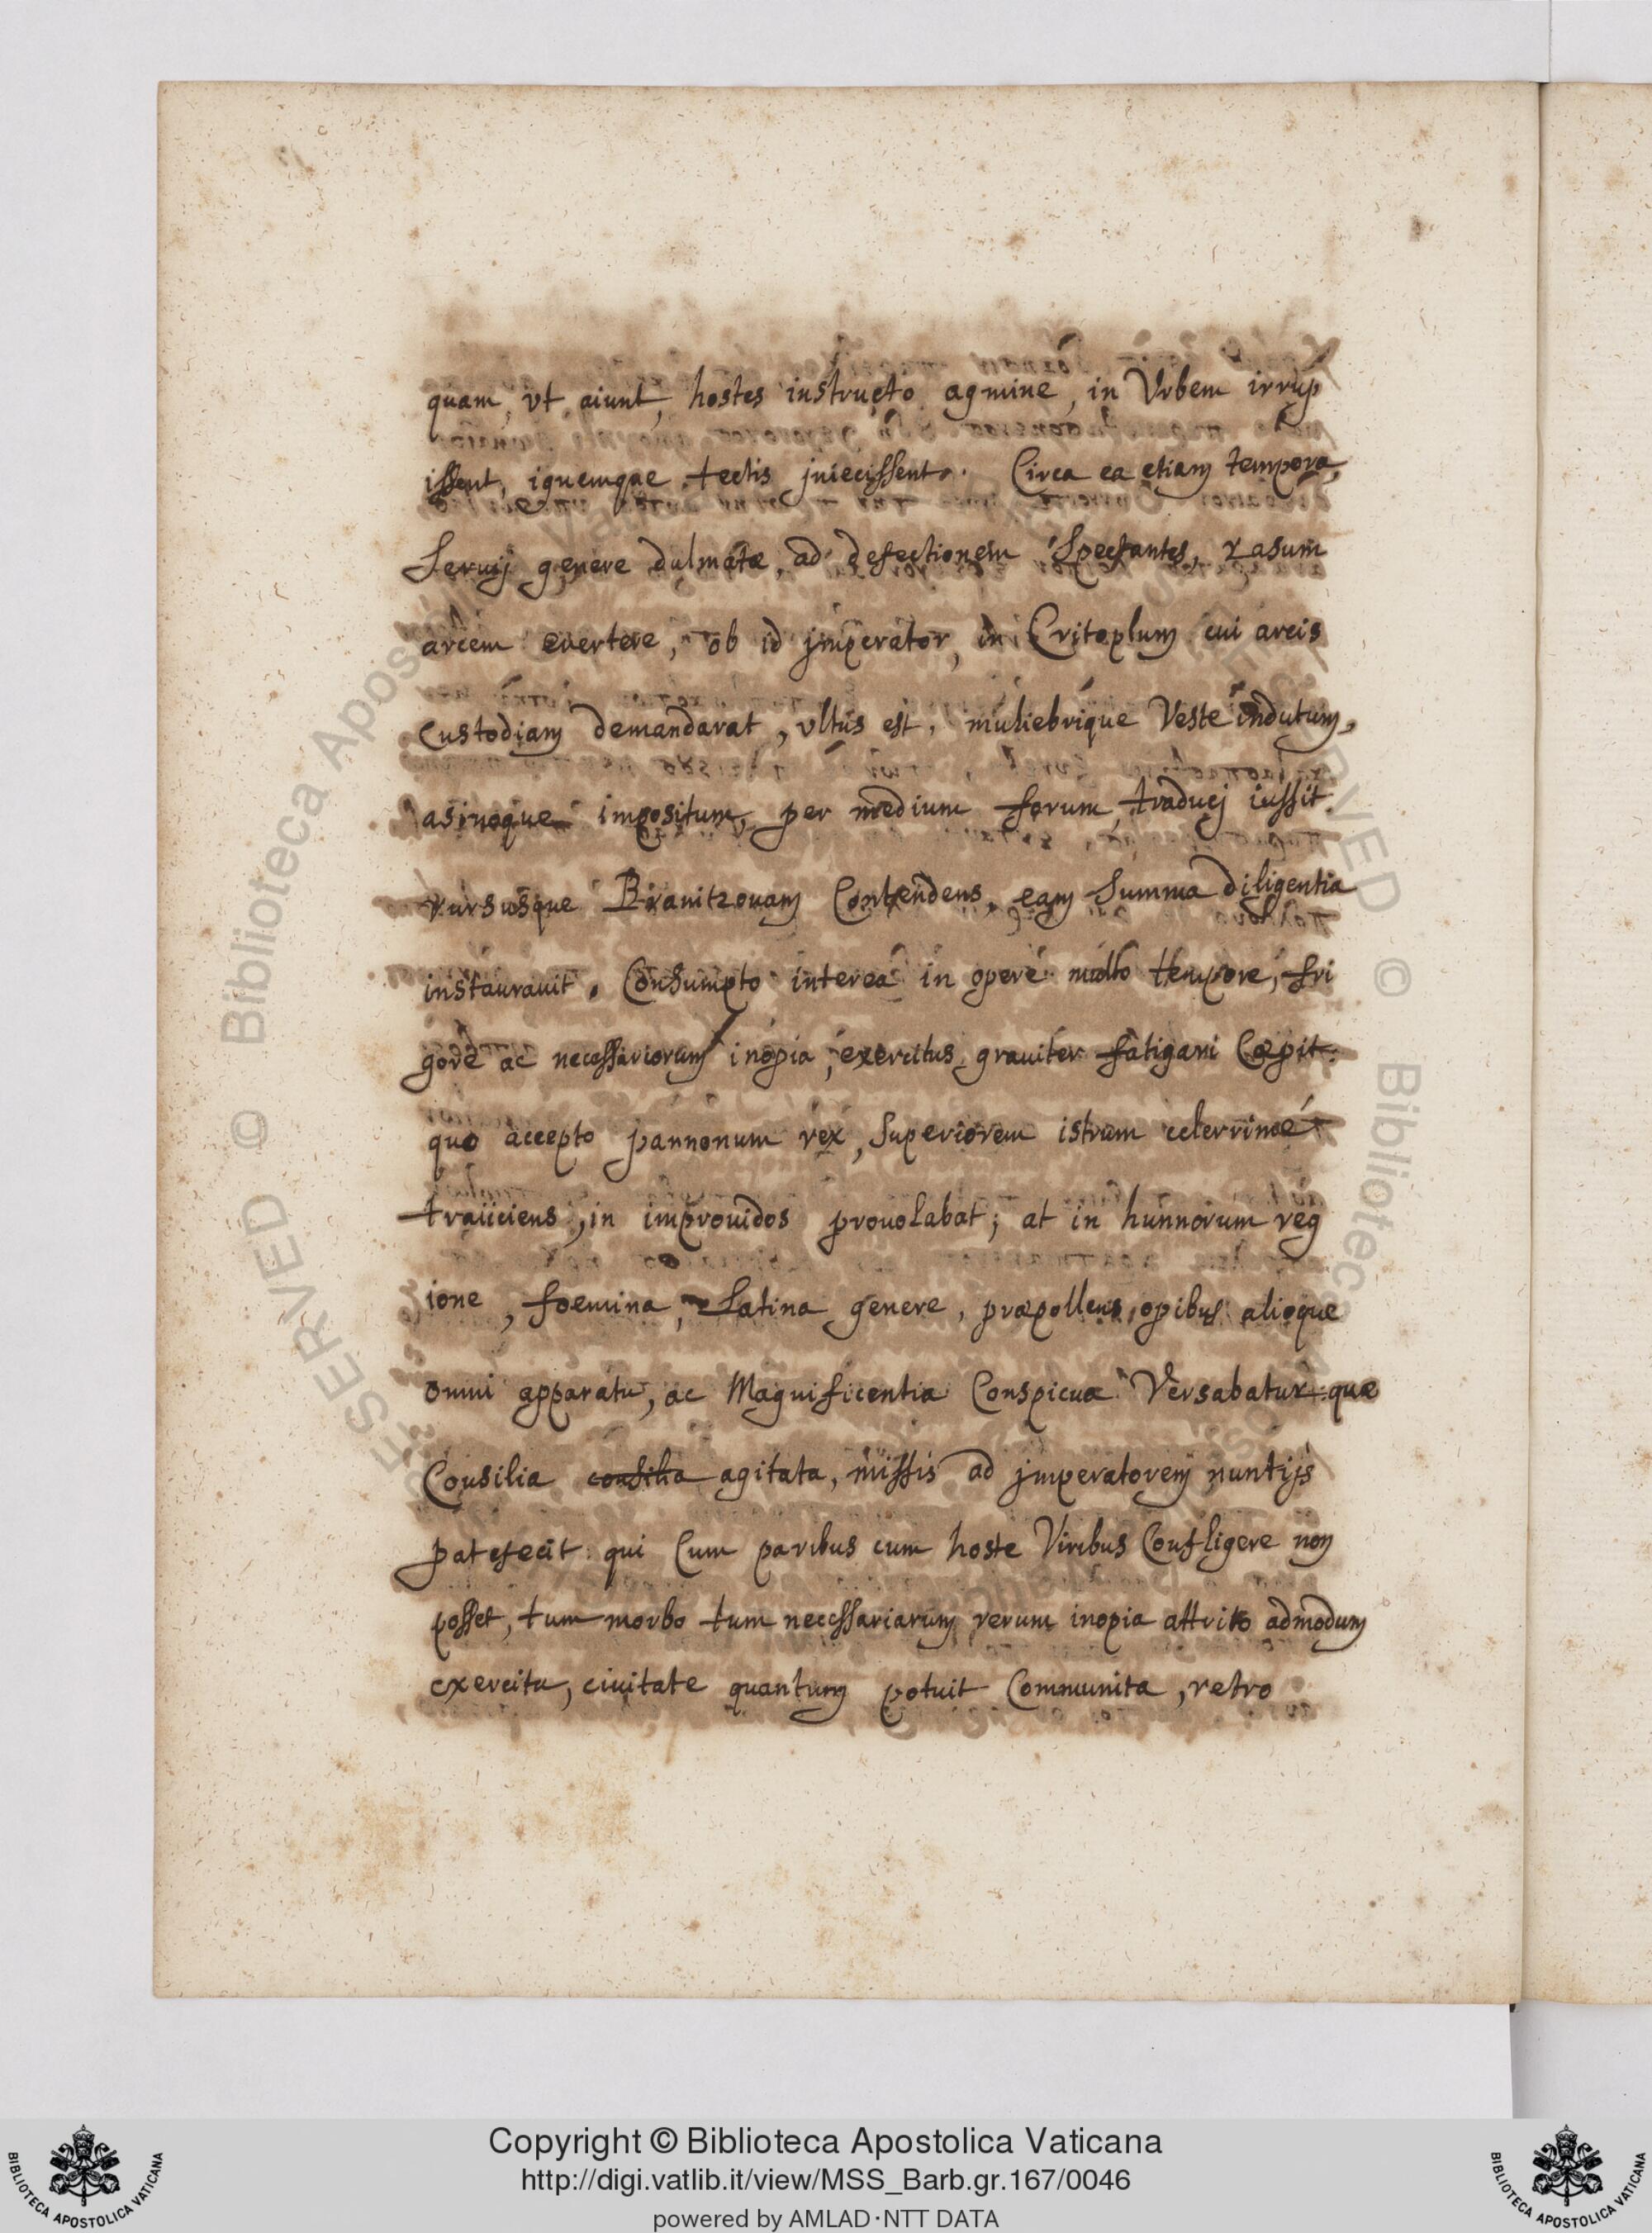 quam, vt aiunt, hostes instructo agmine, in Vrbem irrup
issent, ignemque tectis iniecissent. Circa ea etiam tempora,
Seruij genere dalmatæ, ad defectionem Spectantes, rasum
arcem euertere, ob id jmperator, in Critoplum cui arcis
custodiam demandarat, vltus est, muliebrique Veste indutum,
asinoque impositum, per medium forum, traducj iussit.
rursusque Branitzouam Contendens, eam Summa diligentia
instaurauit. Consumpto interea in opere multo tempore, fri
gore ac necessariorum inopia, exercitus grauiter fatigari Cœpit.
quo accepto pannonum rex, Superiorem istrum celerrimé
traiiciens, in improuidos prouolabat; at in hunnorum reg
ione, foemina, Latina genere, præpollens, opibus alioque
omni apparatu, ac Magnificentia Conspicua Versabatur quæ
Consilia consilia agitata, missis ad jmperatorem nuntijs
patefecit: qui Cum paribus cum hoste Viribus Confligere non
posset, tum morbo tum necessariarum rerum inopia attrito admodum
exercitu, ciuitate quantum potuit Communita, retro
Copyright © Biblioteca Apostolica Vaticana
http://digi.vatlib.it/view/MSS_Barb.gr.167/0046
powered by AMLAD·NTT DATA
BIBLIOTECA APOSTOLICA VATICANA
BIBLIOTECA APOSTOLICA VATICANA